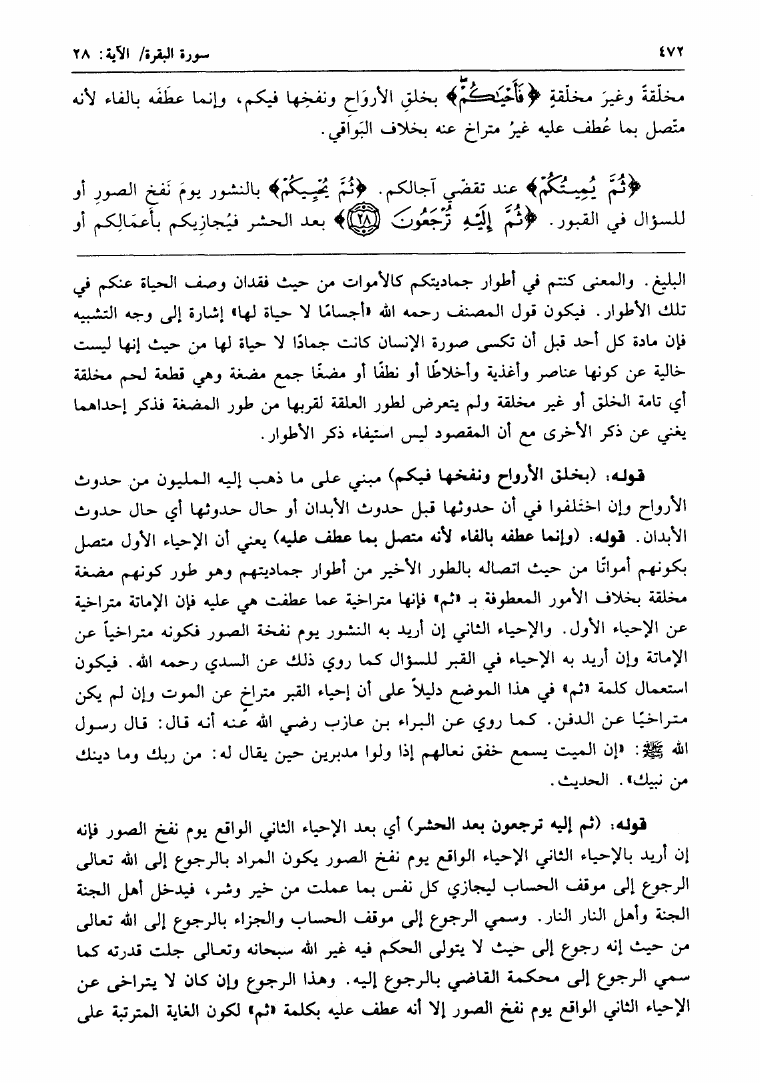 ٤٧٢ سورة البقرة/ الآية: ٢٨
مخلّقةً وغيرَ مخلّقةٍ ﴿فَأَحْيَٰكُمْ﴾ بخلقِ الأروَاحِ ونفخِها فيكم، وإنما عطَفَه بالفاء لأنه
متّصل بما عُطف عليه غيرُ متراخ عنه بخلاف البَوَاقي.
﴿ثُمَّ يُمِيتُكُمْ﴾ عند تقضّي آجالكم. ﴿ثُمَّ يُحْيِيكُمْ﴾ بالنشور يومَ نَفخِ الصورِ أو
للسؤال في القبور. ﴿ثُمَّ إِلَيْهِ تُرْجَعُونَ ٢٨﴾ بعد الحشر فيُجازِيكم بأعمَالِكم أو
البليغ. والمعنى كنتم في أطوار جماديتكم كالأموات من حيث فقدان وصف الحياة عنكم في
تلك الأطوار. فيكون قول المصنف رحمه الله «أجسامًا لا حياة لها» إشارة إلى وجه التشبيه
فإن مادة كل أحد قبل أن تكسى صورة الإنسان كانت جمادًا لا حياة لها من حيث إنها ليست
خالية عن كونها عناصر وأغذية وأخلاطًا أو نطفًا أو مضغًا جمع مضغة وهي قطعة لحم مخلقة
أي تامة الخلق أو غير مخلقة ولم يتعرض لطور العلقة لقربها من طور المضغة فذكر إحداهما
يغني عن ذكر الأخرى مع أن المقصود ليس استيفاء ذكر الأطوار.
قوله: (بخلق الأرواح ونفخها فيكم) مبني على ما ذهب إليه المليون من حدوث
الأرواح وإن اختلفوا في أن حدوثها قبل حدوث الأبدان أو حال حدوثها أي حال حدوث
الأبدان. قوله: (وإنما عطفه بالفاء لأنه متصل بما عطف عليه) يعني أن الإحياء الأول متصل
بكونهم أمواتًا من حيث اتصاله بالطور الأخير من أطوار جماديتهم وهو طور كونهم مضغة
مخلقة بخلاف الأمور المعطوفة بـ «ثم» فإنها متراخية عما عطفت هي عليه فإن الإماتة متراخية
عن الإحياء الأول. والإحياء الثاني إن أريد به النشور يوم نفخة الصور فكونه متراخياً عن
الإماتة وإن أريد به الإحياء في القبر للسؤال كما روي ذلك عن السدي رحمه الله. فيكون
استعمال كلمة «ثم» في هذا الموضع دليلاً على أن إحياء القبر متراخ عن الموت وإن لم يكن
متراخيًا عن الدفن. كما روي عن البراء بن عازب رضي الله عنه أنه قال: قال رسول
الله ﷺ: «إن الميت يسمع خفق نعالهم إذا ولوا مدبرين حين يقال له: من ربك وما دينك
من نبيك». الحديث.
قوله: (ثم إليه ترجعون بعد الحشر) أي بعد الإحياء الثاني الواقع يوم نفخ الصور فإنه
إن أريد بالإحياء الثاني الإحياء الواقع يوم نفخ الصور يكون المراد بالرجوع إلى الله تعالى
الرجوع إلى موقف الحساب ليجازي كل نفس بما عملت من خير وشر، فيدخل أهل الجنة
الجنة وأهل النار النار. وسمي الرجوع إلى موقف الحساب والجزاء بالرجوع إلى الله تعالى
من حيث إنه رجوع إلى حيث لا يتولى الحكم فيه غير الله سبحانه وتعالى جلت قدرته كما
سمي الرجوع إلى محكمة القاضي بالرجوع إليه. وهذا الرجوع وإن كان لا يتراخى عن
الإحياء الثاني الواقع يوم نفخ الصور إلا أنه عطف عليه بكلمة «ثم» لكون الغاية المترتبة على